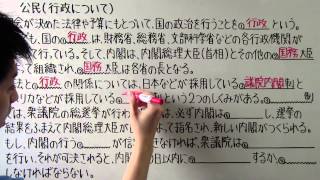 公民(行政について)
会が決めた法律や予算にもとづいて、国の政治を行うことを①行政という。
も、国の②行政は、財務省、総務省、文部科学省などの各行政機関が
て行っている。そして、内閣は、内閣総理大臣(首相)とその他の③国務大臣
って組織され、④国務大臣は各省の長となる。
法と⑤行政の関係については、日本などが採用している⑥議院内閣制と
リカなどが採用している いう2つのしくみがある。 制
は、衆議院の総選挙が行わ は、必ず内閣は し、選挙の
結果をふまえて内閣総理大臣が よって指名され、新しい内閣がつくられる。
もし、内閣の行う が信 できなければ、衆議院は
を行い、それが可決されると、内閣 日以内に するか、
しなければならない。